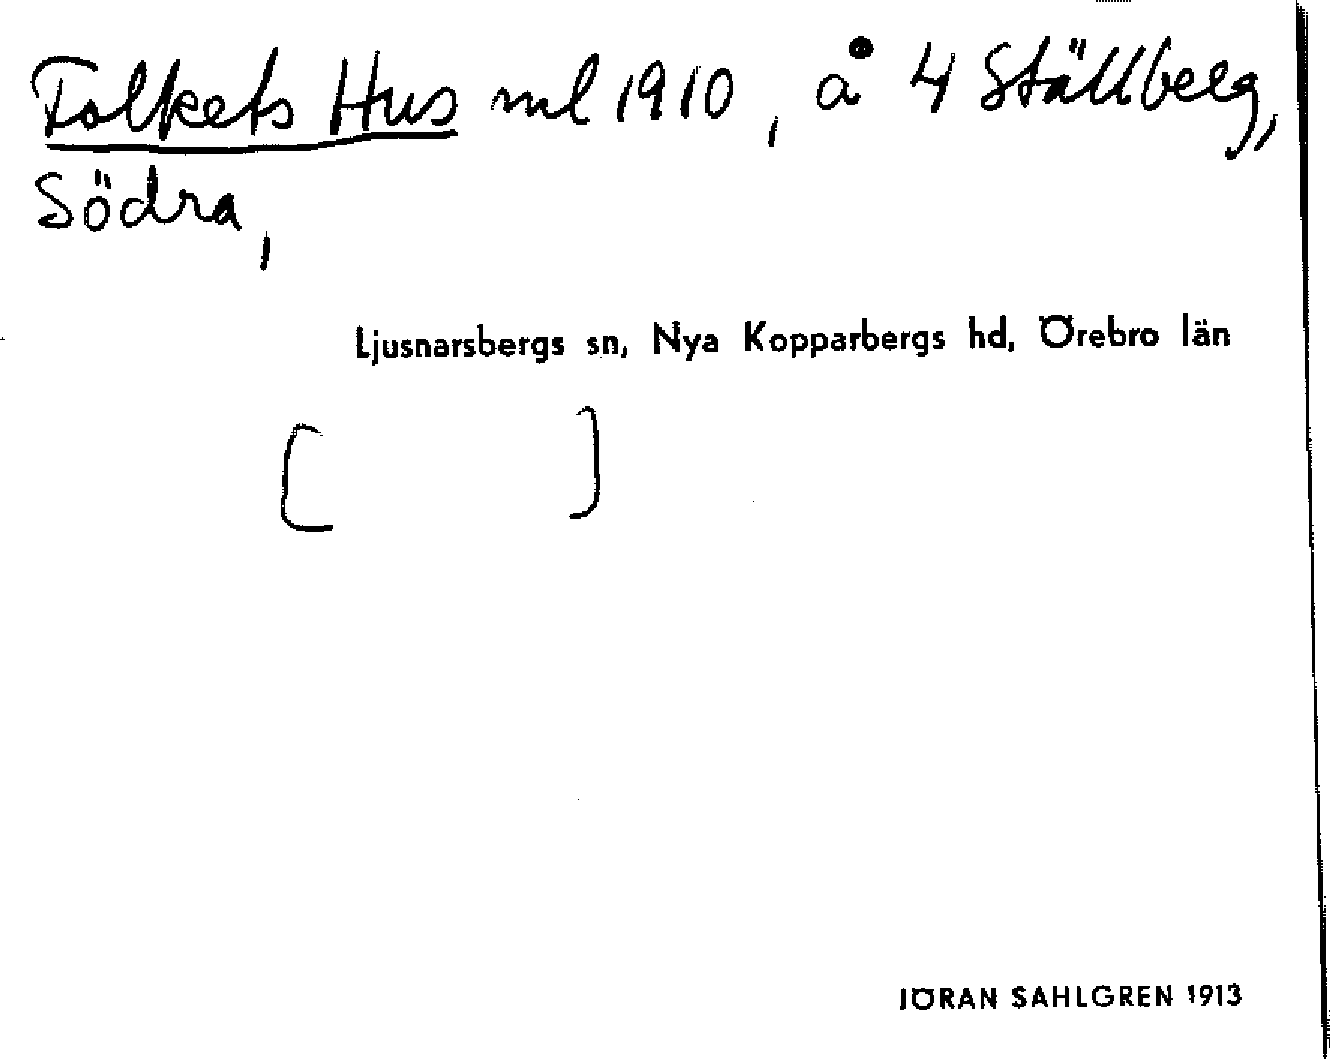 Folkets Hus ml 1910, å 4 Ställberg,
Södra,
Ljusnarsbergs sn, Nya Kopparbergs hd, Örebro län
[ ]
JÖRAN SAHLGREN 1913